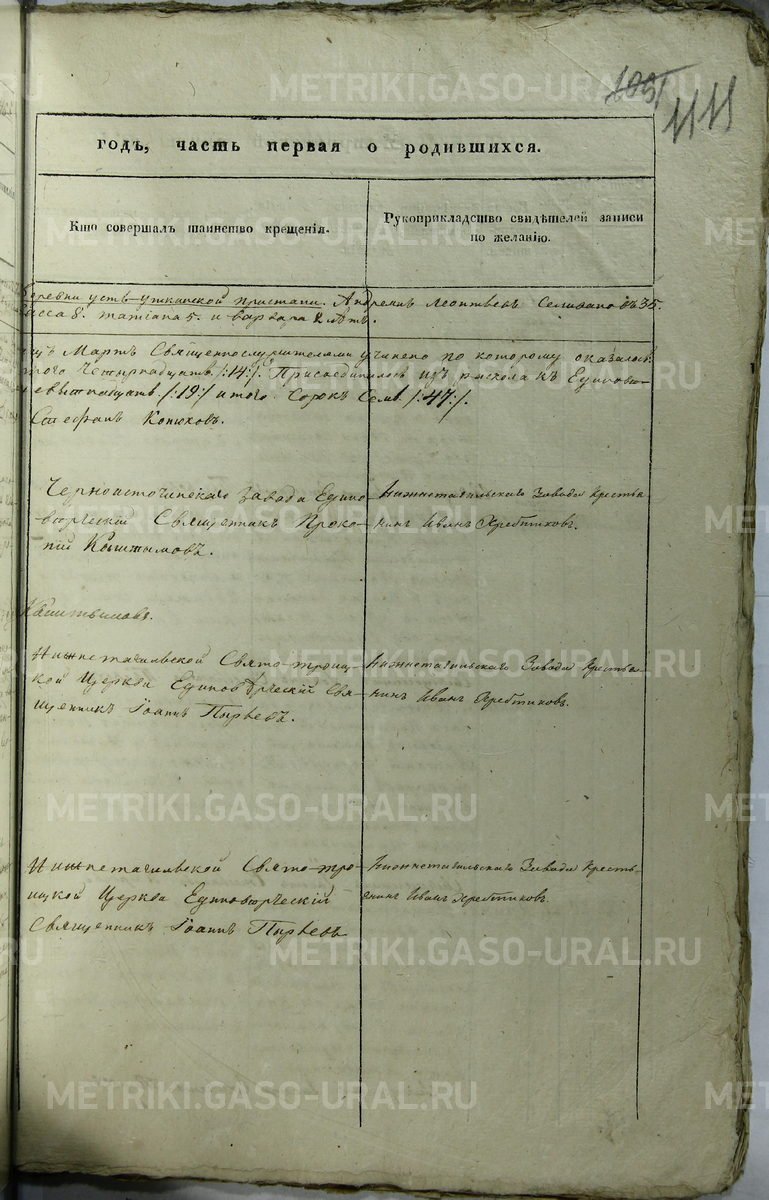 1111
годъ, часть первая о родившихся.
Кто совершалъ таинство крещенія.
Рукоприкладство свидѣтелей записи
по желанію.
усть-уткинской пристани. Андреянъ Леонтьевъ 35.
8. татіана 5. и варвара 2 лѣтъ.
Мартъ Священнослужителями учинено по которому оказалось
Четырнадцать /:14:/. Присоединилось изъ раскола къ Единовѣ-
/:19:/ итого Сорокъ Семь /:47:/.
Стефанъ Конюховъ.
Черноисточинскаго Завода Едино-
вѣрческій Священникъ Проко-
пій Кыштымовъ.
Нижнетагильскаго Завода Крестья-
нинъ Иванъ Хребтиковъ.
Нижнетагильской Свято-троиц-
кой Церкви Единовѣрческій Свя-
щенникъ Іоаннъ Пырьевъ.
Нижнетагильскаго Завода Крестья-
нинъ Иванъ Хребтиковъ.
Нижнетагильской Свято-тро-
ицкой Церкви Единовѣрческій
Священникъ Іоаннъ Пырьевъ
Нижнетагильскаго Завода Кресть-
янинъ Иванъ Хребтиковъ.
METRIKI.GASO-URAL.RU